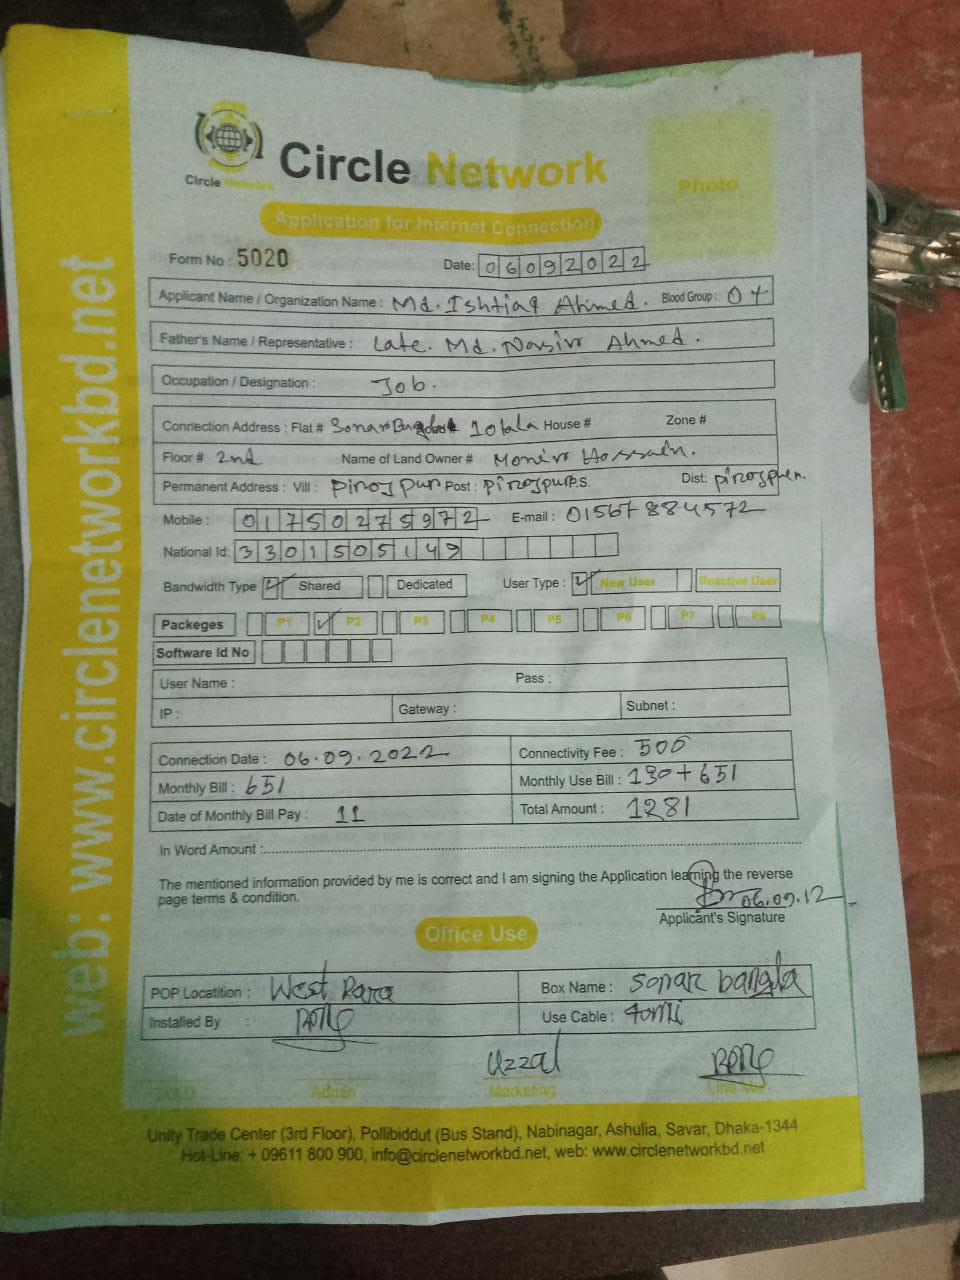 Circle Network
Circle Network
Photo
Application for Internet Connection
Form No : 5020
Date: 06092022
Applicant Name / Organization Name : Md. Ishtiaq Ahmed. Blood Group : O+
Father's Name / Representative : Late. Md. Nasir Ahmed.
Occupation / Designation : Job.
Connection Address : Flat # Sonar 10tala House # Zone #
Floor # 2nd Name of Land Owner # Monir Hossain.
Permanent Address : Vill : Pirojpur Post : Pirojpur P.S. Dist:
Mobile : 01750275972 E-mail : 01567884572
National Id: 3301505149
Bandwidth Type Shared Dedicated User Type : New User Reactive User
Packeges P1 P2 P3 P4 P5 P6 P7 P8
Software Id No
User Name : Pass :
IP : Gateway : Subnet :
Connection Date : 06.09.2022 Connectivity Fee : 500
Monthly Bill : 651 Monthly Use Bill : 130+651
Date of Monthly Bill Pay : 11 Total Amount : 1281
In Word Amount :
The mentioned information provided by me is correct and I am signing the Application learning the reverse
page terms & condition.
06.09.12
Applicant's Signature
Office Use
POP Locatition : West Para Box Name : Sonar bangla
Installed By : Use Cable :
Uzzal
Admin Marketing
Unity Trade Center (3rd Floor), Pollibiddut (Bus Stand), Nabinagar, Ashulia, Savar, Dhaka-1344
Hot-Line: + 09611 800 900, info@circlenetworkbd.net, web: www.circlenetworkbd.net
web: www.circlenetworkbd.net